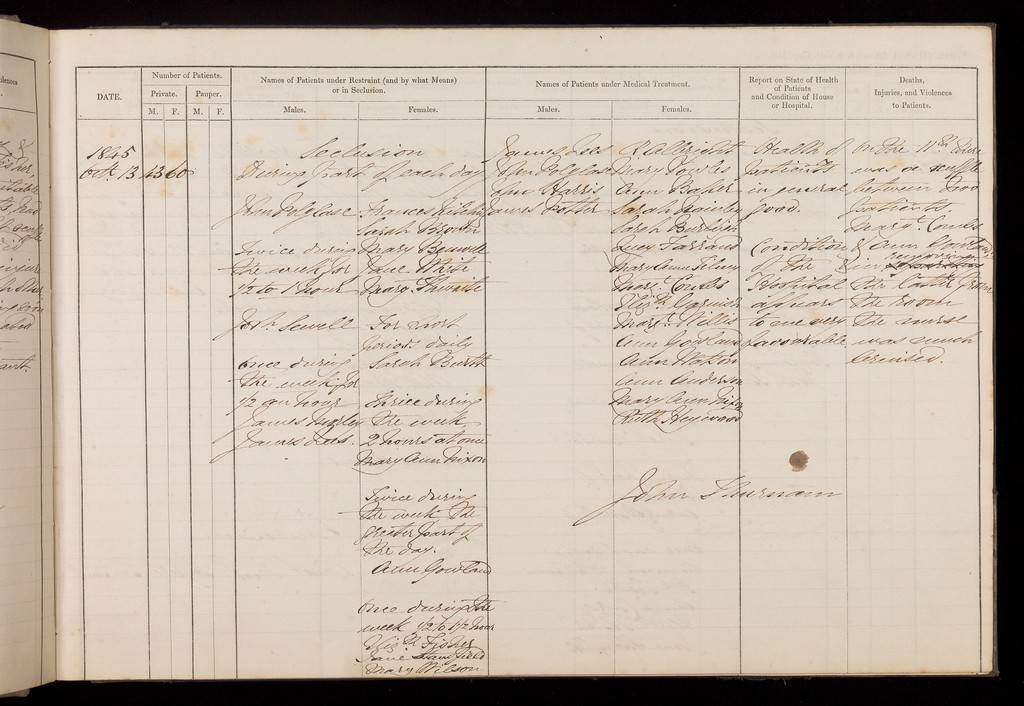 DATE.
Number of Patients.
Private.
Pauper.
M.
F.
M.
F.
Names of Patients under Restraint (and by what Means)
or in Seclusion.
Males.
Females.
Names of Patients under Medical Treatment.
Males.
Females.
Report on State of Health
of Patients
and Condition of House
or Hospital.
Deaths,
Injuries, and Violences
to Patients.
1845
Octr. 13
43
60
Seclusion
During part of each day
John Polglase
Twice during
the week for
1/2 to 1 hour
Josh. Sewell
Once during
the week for
1/2 an hour
James Morley
James Lees.
Frances Kitchin
Sarah Brown
Mary
Jane White
Margt.
For short
periods daily
Sarah Burtt
Thrice during
the week
2 hours at once
Mary Ann Nixon
Twice during
the week the
greater part of
the day.
Ann Gowland
Once during the
week 1/2 to 1 1/2 hour
Elizth. Fisher
Jane Stansfield
Mary Wilson
James Lees
John Polglase
John Harris
James Potter
R Allbright
Mary Fowles
Ann Baker
Sarah
Sarah
Lucy Farrand
Mary Anne Tilney
Margt. Combs
Elizth.
Margt. Willis
Ann Gowland
Ann Watson
Ann Anderson
Mary Ann Nixon
Ruth Heywood
Health of
patients
in general
good.
Condition
of the
Hospital
appears
to me very
favourable
On the 11th. there
was a scuffle
between two
patients
Margt. Combs
& Ann Gowland
in removing
the latter from
the room
the nurse
was much
bruised.
John Thurnam